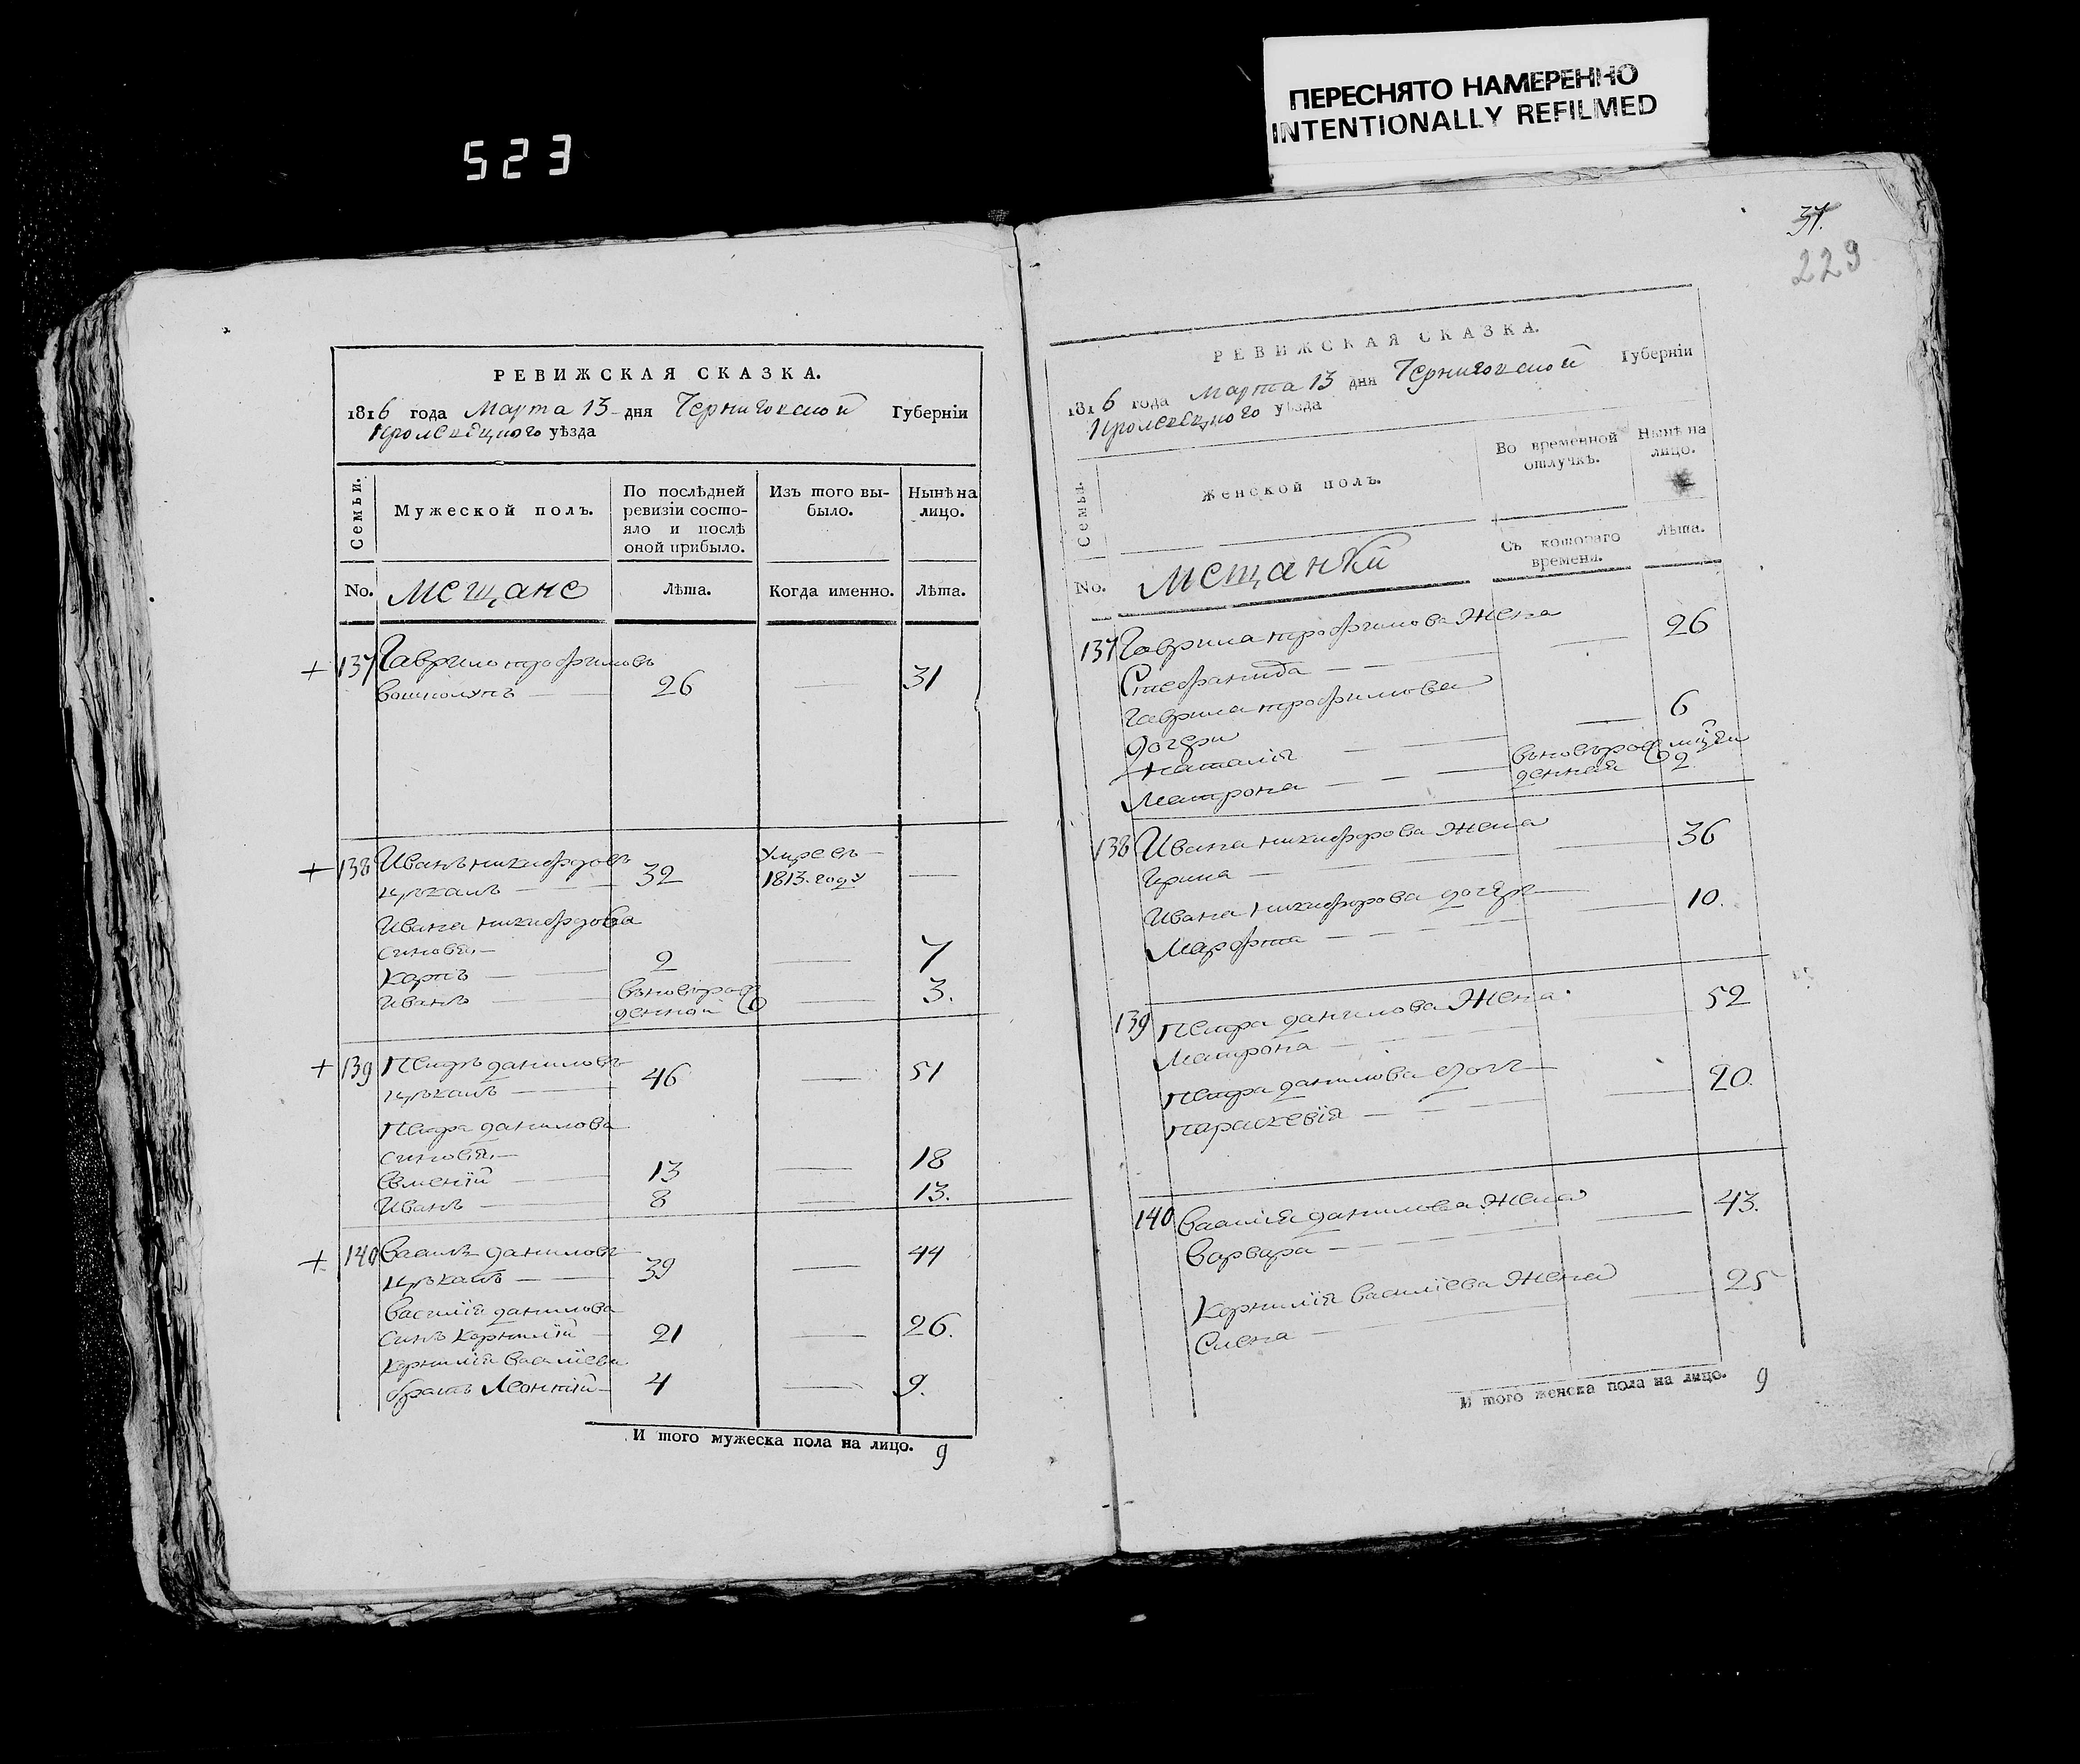 ПЕРЕСНЯТО НАМЕРЕННО
INTENTIONALLY REFILMED
523
РЕВИЖСКАЯ СКАЗКА.
1816 года Марта 13 дня Черниговской Губерніи
Кролевецкого уѣзда
Семьи.
Мужеской полъ.
По послѣдней
ревизіи состо-
яло и послѣ
оной прибыло.
Изъ того вы-
было.
Нынѣ на
лицо.
No.
Мещане
Лѣта.
Когда именно.
Лѣта.
137 Гаврило трофимовъ
26 31
+ 138 Иванъ никифоровъ
32
умре въ
1813. году
Ивана никифорова
синовя
Карпъ 2 7
Иванъ
вьновьрож
денной
3.
+ 139 Петръ даниловъ
46 51
Петра данилова
синовя
Евмений 13 18
Иванъ 8 13.
+ 140 Василь даниловъ
39 44
Василія данилова
синъ Корнилій 21 26.
Корнилія Василіева
братъ Леонтій 4 9.
И того мужеска пола на лицо. 9
37.
229
РЕВИЖСКАЯ СКАЗКА.
1816 года Марта 13 дня Черниговской Губерніи
Кролевецкого уѣзда
Семьи.
Женской полъ.
Во временной
отлучкѣ.
Нынѣ на
лицо.
Съ котораго
времени.
Лѣта.
No.
Мещанки
137 Гаврила трофимова Жена
26
Гаврила трофимова
дочери
Наталія 6
Матрона
вьновьрож
денная
2
138 Ивана никифорова Жена
Ирина 36
Ивана никифорова дочерь
Марфта 10.
139 Петра данилова Жена
Матрона 52
Петра данилова
параскевія 20.
140 Василія данилова Жена
Варвара 43.
Корнилія Василіева Жена
Елена 25
И того женска пола на лицо. 9